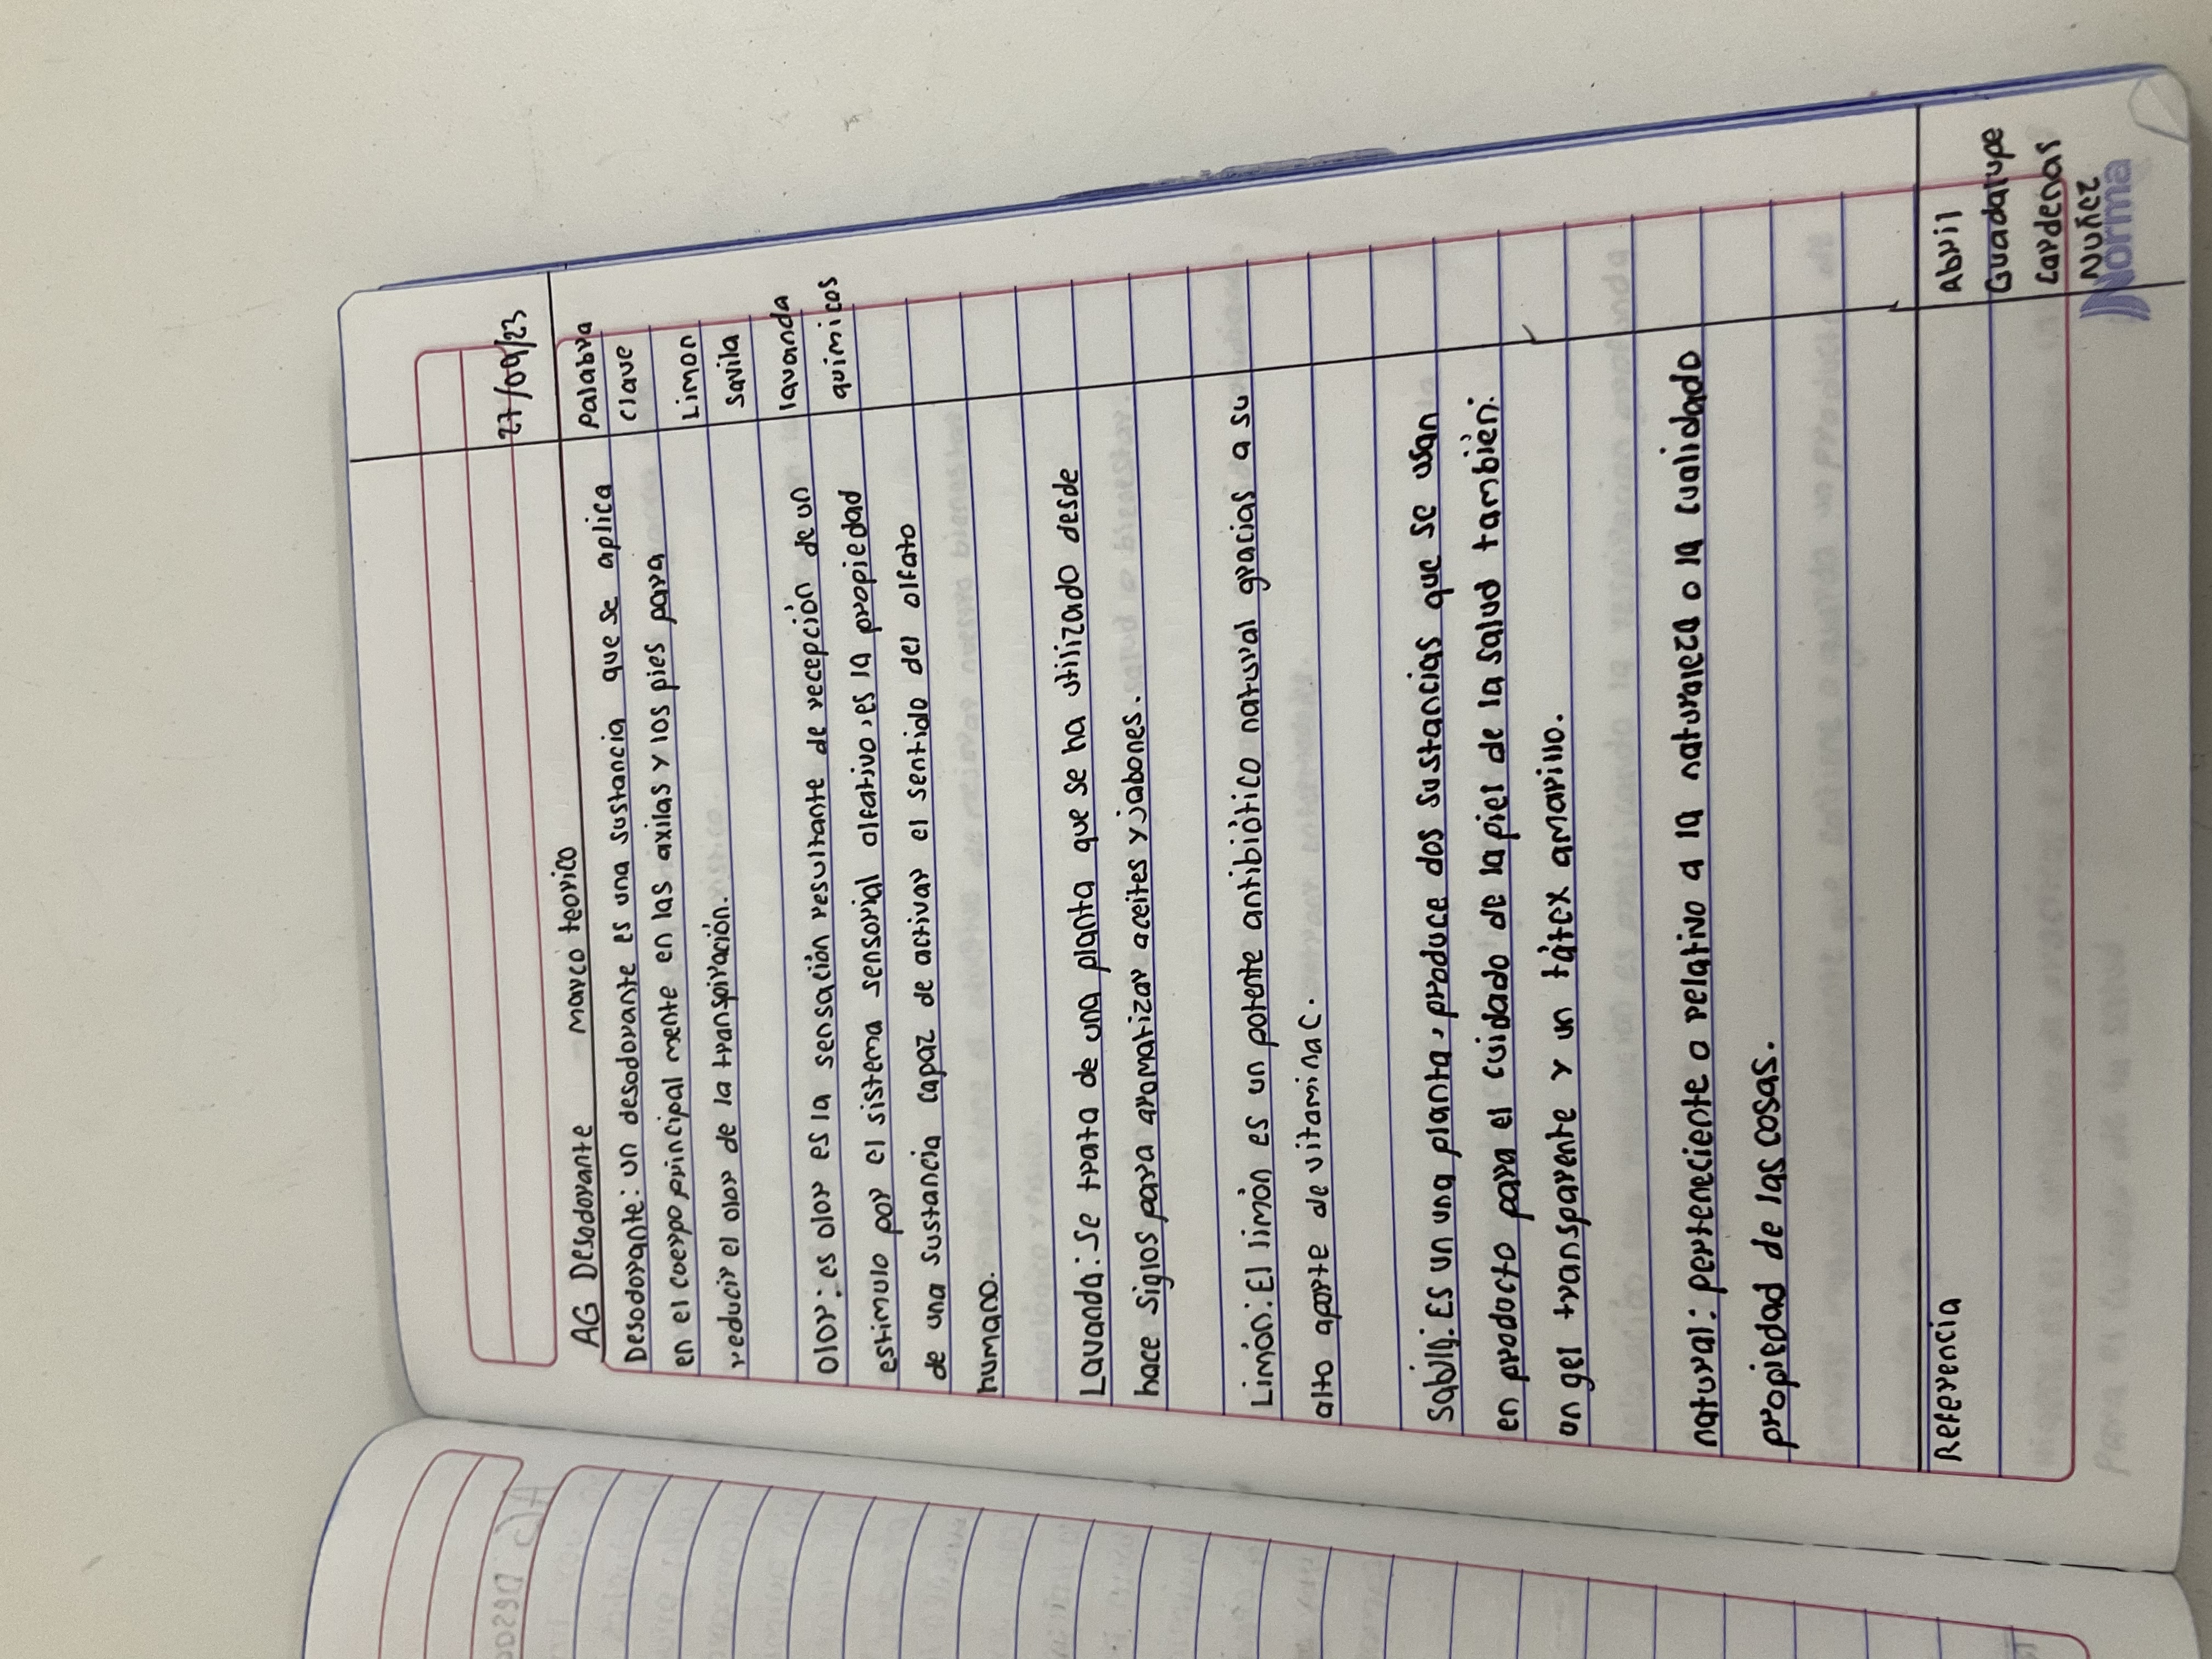 27/09/23
AG Desodorante marco teorico
Desodorante: un desodorante es una sustancia que se aplica
en el coerpo principal mente en las axilas y los pies para
reducir el olor de la transpiración.
Olor: es olor es la sensación resultante de recepción de un
estimulo por el sistema sensorial olfativo, es la propiedad
de una sustancia capaz de activar el sentido del olfato
humano.
Lavanda: Se trata de una planta que se ha utilizado desde
hace siglos para aromatizar aceites y jabones.
Limón: El limón es un potente antibiótico natural gracias a su
alto aporte de vitamina C.
Sabila: Es un una planta, produce dos sustancias que se usan
en producto para el cuidado de la piel de la salud también:
un gel transparente y un látex amarillo.
natural: perteneciente o relativo a la naturaleza o la cualidado
propiedad de las cosas.
Palabra
clave
Limon
savila
lavanda
quimicos
Referencia
Abril
Guadalupe
Cardenas
Nuñez
Norma